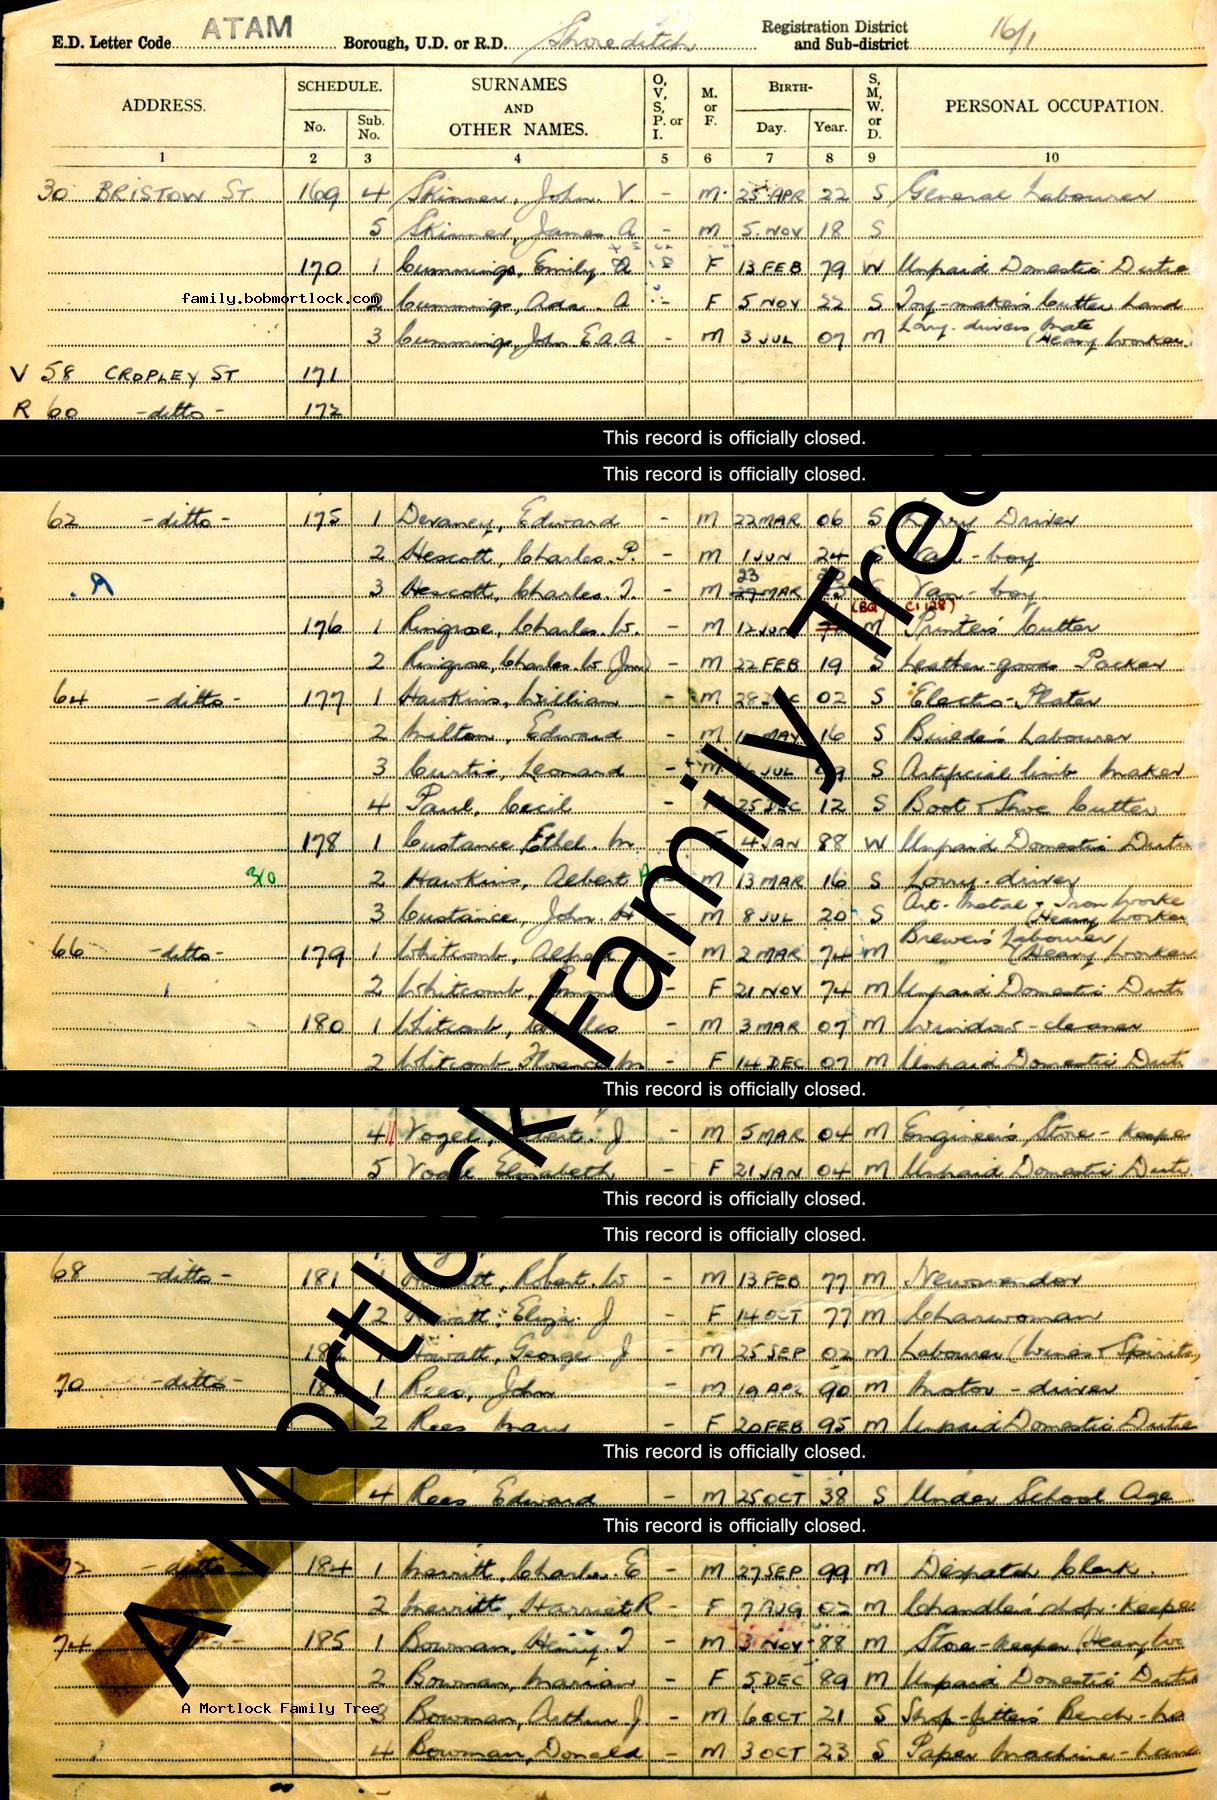 E.D. Letter Code ATAM Borough, U.D. or R.D. Shoreditch Registration District and Sub-district 16/1
ADDRESS. SCHEDULE. No. Sub. No. SURNAMES AND OTHER NAMES. O, V, S, P. or I. M. or F. BIRTH- Day. Year. S, M, W. or D. PERSONAL OCCUPATION.
1 2 3 4 5 6 7 8 9 10
30 BRISTOW ST 169 4 Skinner, John. V. - M. 25 APR 22 S General Labourer
5 Skinner, James. A - M 5. NOV 18 S
170 1 Cummings, Emily - F 13 FEB 79 W Unpaid Domestic Dutie
family.bobmortlock.com
2 Cummings, Ada. A - F 5 NOV 22 S Toy-maker's Cutter hand
3 Cummings, John E.A.A - M 3 JUL 07 M Lorry-drivers Mate (Heavy Worker)
V 58 CROPLEY ST 171
R 60 -ditto- 172
This record is officially closed.
This record is officially closed.
62 -ditto- 175 1 Devaney, Edward - M 22 MAR 06 S Lorry Driver
2 Hescott, Charles. P. - M 1 JUN 24 S Van-boy
A 3 Hescott, Charles. T. - M 23 MAR S Van-boy
176 1 Ringrose, Charles. W. - M 12 JUN M Printer's Cutter
2 Ringrose, Charles. W (Jnr) - M 22 FEB 19 S Leather-goods Packer
64 -ditto- 177 1 Hawkins, William - M 28 DEC 02 S Electro-Plater
2 Milton, Edward - M MAY 16 S Builder's Labourer
3 Curtis, Leonard - M JUL 09 S Artificial limb maker
4 Paul, Cecil - M 25 DEC 12 S Boot & Shoe Cutter
178 1 Custance Ethel. M - F 4 JAN 88 W Unpaid Domestic Dutie
2 Hawkins, Albert M 13 MAR 16 S Lorry-driver
3 Custance, John. H - M 8 JUL 20 S Art-Metal & Iron Worke (Heavy Worker
66 -ditto- 179 1 Whitcomb, Alfred - M 2 MAR 74 M Brewer's Labourer (Heavy Worker
2 Whitcomb, - F 21 NOV 74 M Unpaid Domestic Duti
180 1 Whitcomb, Charles - M 3 MAR 07 M Window-cleaner
2 Whitcomb Florence M - F 14 DEC 07 M Unpaid Domestic Duti
This record is officially closed.
4 Vogel, J - M 5 MAR 04 M Engineer's Store-Keepe
5 Vogel Elizabeth - F 21 JAN 04 M Unpaid Domestic Duti
This record is officially closed.
This record is officially closed.
68 -ditto- 181 1 Howatt, Robert. W - M 13 FEB 77 M Newsvendor
2 Howatt, Eliza. J - F 14 OCT 77 M Charwoman
182 1 Howatt, George. J - M 25 SEP 02 M Labourer (Wines & Spirits)
70 -ditto- 183 1 Rees, John - M 19 APR 90 M Motor-driver
2 Rees Mary - F 20 FEB 95 M Unpaid Domestic Dutie
This record is officially closed.
4 Rees Edward - M 25 OCT 38 S Under School Age
This record is officially closed.
72 -ditto- 184 1 Merritt, Charles. E - M 27 SEP 99 M Despatch Clerk.
2 Merritt, Harriet R - F 7 AUG 02 M Chandler's shop-keepe
74 -ditto- 185 1 Bowman, Henry. T - M 3 NOV 88 M Store-keeper (Heavy Wo
2 Bowman, Marian - F 5 DEC 89 M Unpaid Domestic Dutie
A Mortlock Family Tree
3 Bowman, Arthur J. - M 6 OCT 21 S Shop-fitter's Bench-ha
4 Bowman, Donald - M 3 OCT 23 S Paper Machine-hand
A Mortlock Family Tree